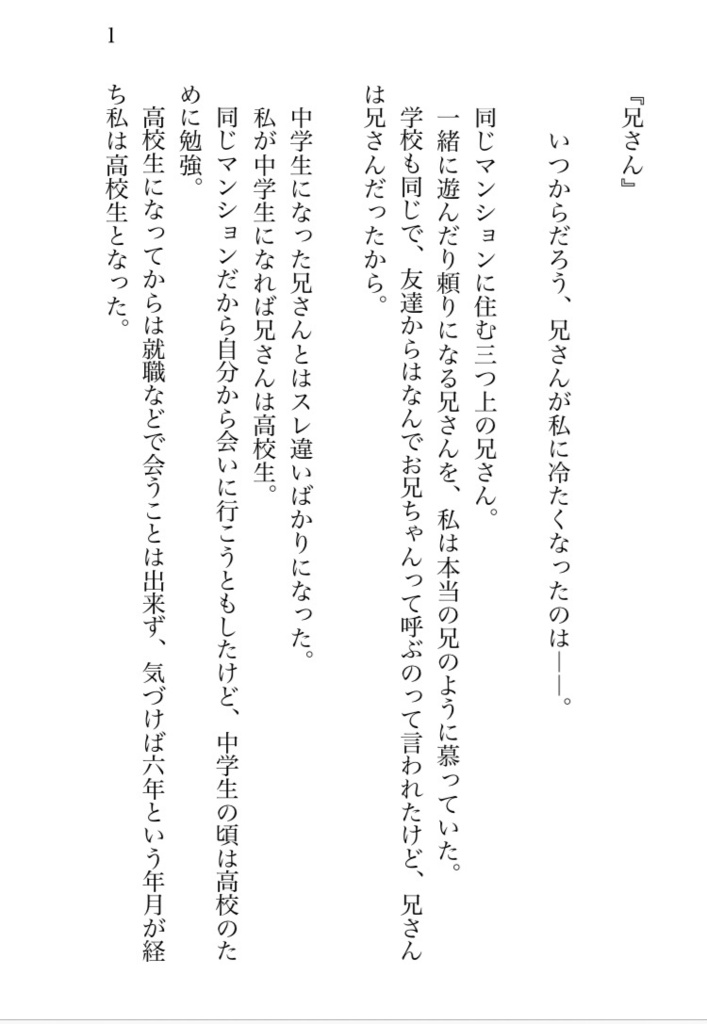 1
『兄さん』
いつからだろう、兄さんが私に冷たくなったのは――。
同じマンションに住む三つ上の兄さん。
一緒に遊んだり頼りになる兄さんを、私は本当の兄のように慕っていた。
学校も同じで、友達からはなんでお兄ちゃんって呼ぶのって言われたけど、兄さん
は兄さんだったから。
中学生になった兄さんとはスレ違いばかりになった。
私が中学生になれば兄さんは高校生。
同じマンションだから自分から会いに行こうともしたけど、中学生の頃は高校のた
めに勉強。
高校生になってからは就職などで会うことは出来ず、気づけば六年という年月が経
ち私は高校生となった。